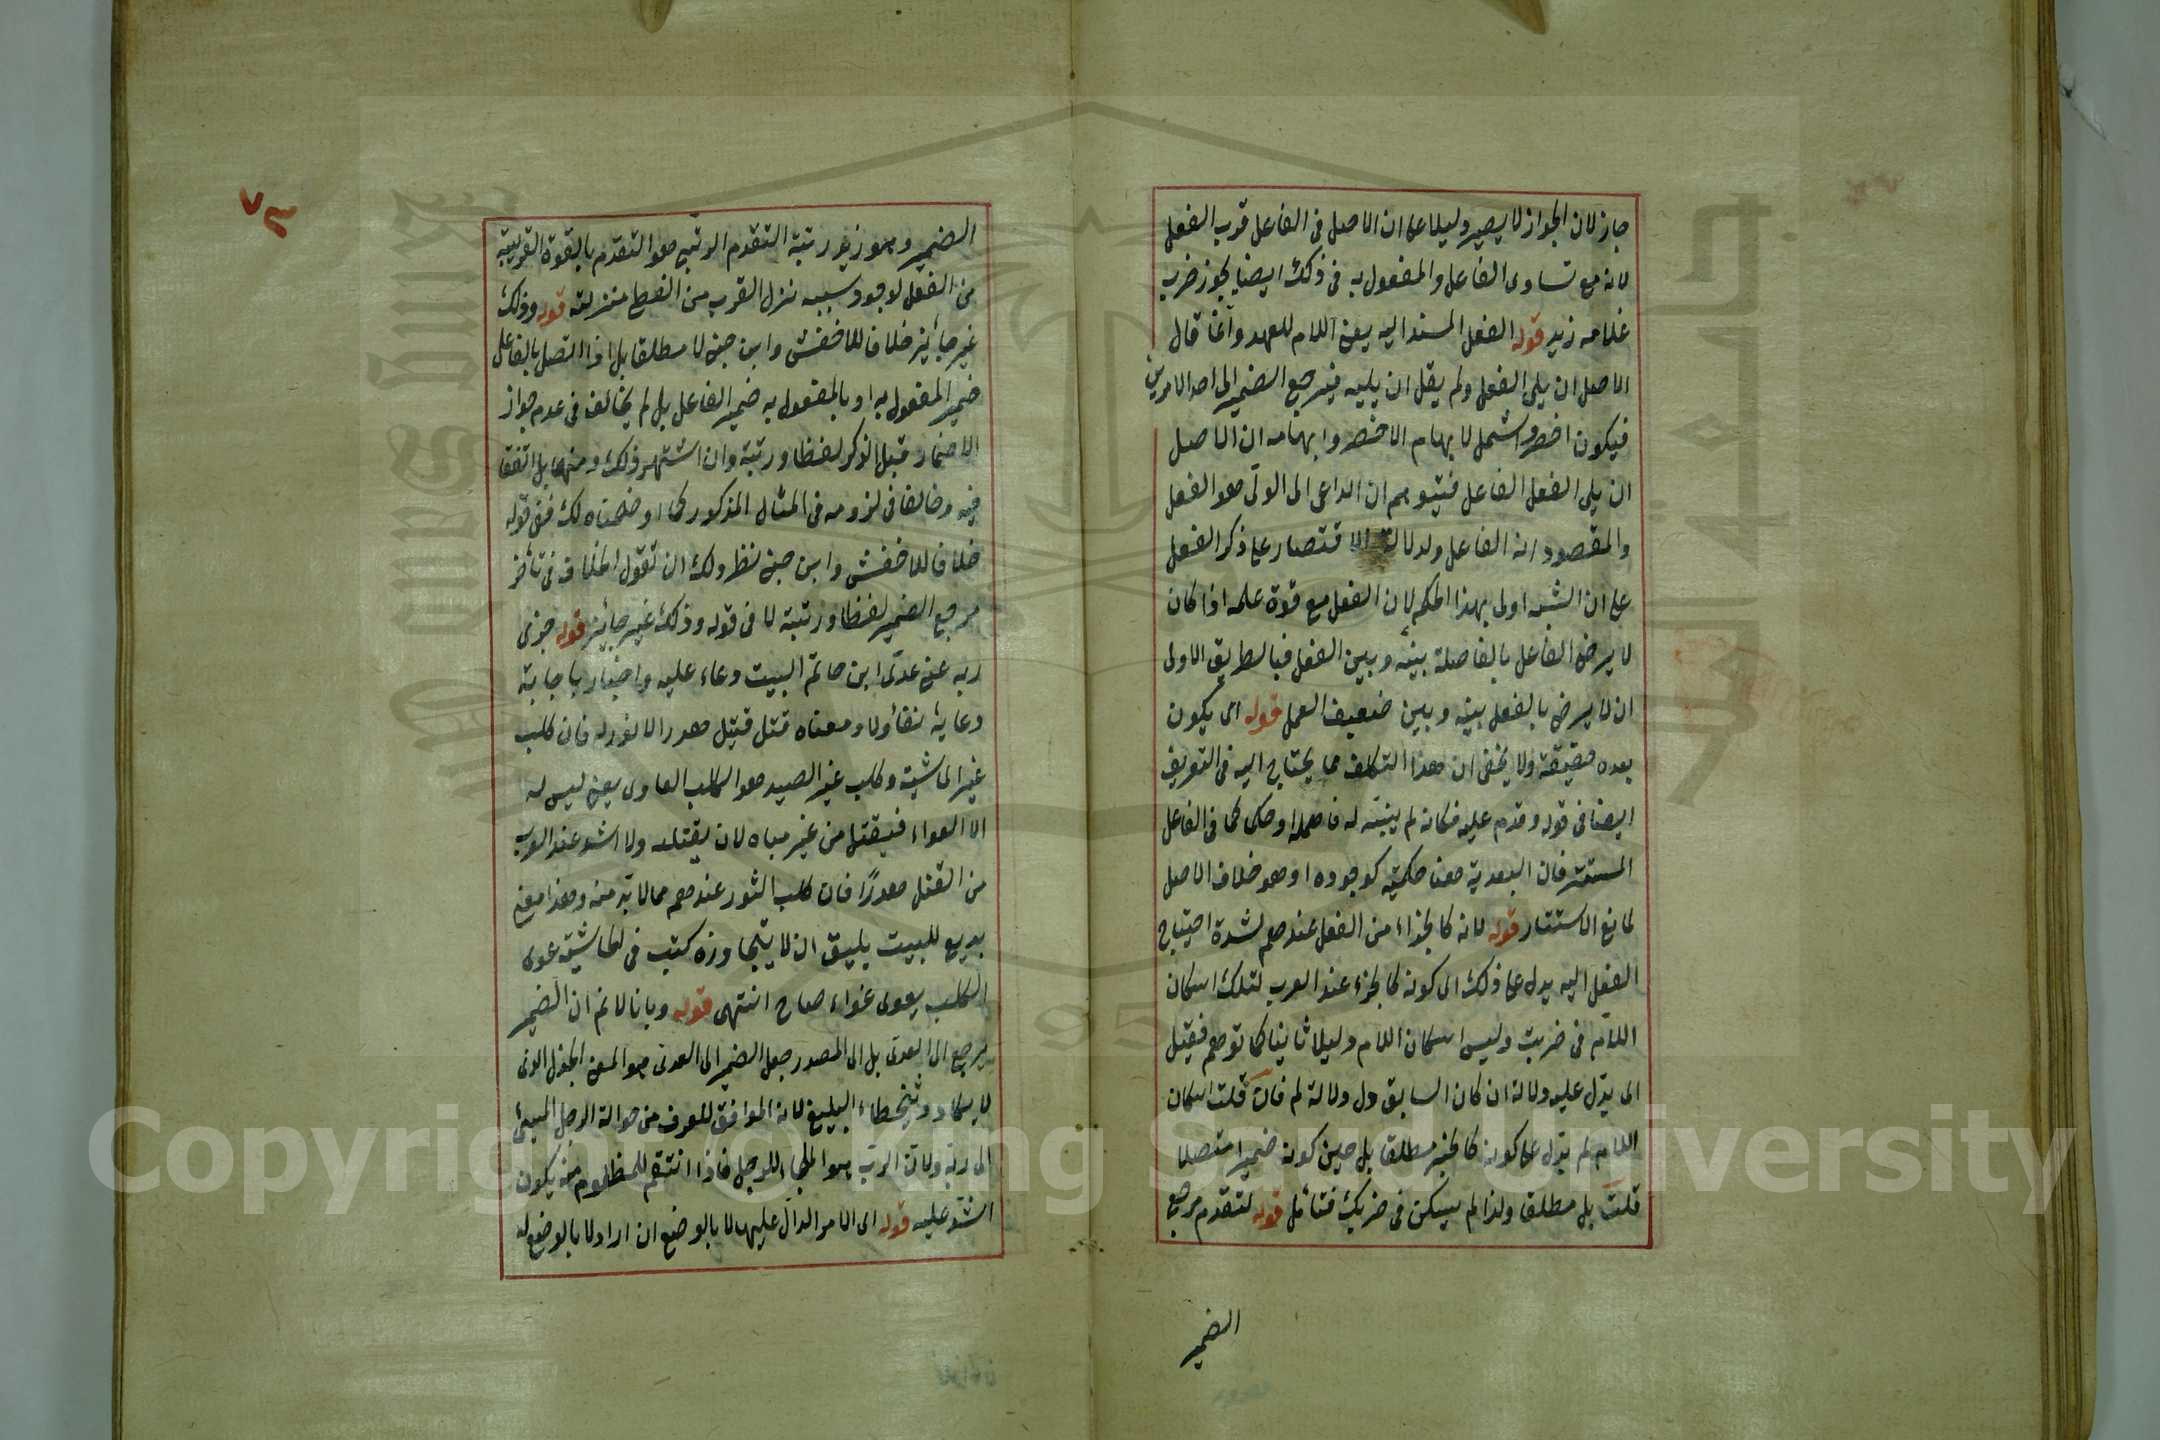 جاز لان الجواز لا يصير دليلا على ان الاصل في الفاعل قرب الفعل
لانه مع تساوى الفاعل والمفعول به في ذلك ايضا يجوز ضرب
غلامه زيد قوله الفعل المسند اليه يعنى اللام للعهد وانما قال
الاصل ان يلى الفعل ولم يقل ان يليه فيرجع الضمير الى احد الامرين
فيكون اخصر واشمل لا بهام الاخصر وابهامه ان الاصل
ان يلى الفعل الفاعل فيتوهم ان الداعى الى الولى هو الفعل
والمقصود انه الفاعل ولدلالة الاقتصار على ذكر الفعل
على ان الشبه اولى بهذا الحكم لان الفعل مع قوة عمله اذا كان
لا يرضى الفاعل بالفاصلة بينه وبين الفعل فبالطريق الاولى
ان لا يرضى بالفعل بينه وبين ضعيف العمل قوله اى يكون
بعده حقيقة ولا يخفى ان هذا التكلف مما يحتاج اليه في التعريف
ايضا في قوله وقدم عليه فكانه لم ينبه له فاصله او حكى كما في الفاعل
المستتر فان البعدية هنا حكمية كوجوده اوهو خلاف الاصل
لمانع الاستتار قوله لانه كالجزء من الفعل عندهم لشدة احتياج
الفعل اليه يدل على ذلك اى كونه كالجزء عند العرب لتلك اسكان
اللام في ضربت وليس اسكان اللام دليلا ثانيا كما توهم فقيل
اى يدل عليه دلالة ان كان السابق دل دلالة لم فان قلت اسكان
اللام لم يدل على كونه كالجزء مطلقا بل حين كونه ضميرا متصلا
قلت بل مطلقا ولذا لم يسكن في ضربك فتامل قوله لتقدم مرجع
الضمير
٧٣
الضمير وهو زيد رتبة التقدم الرتبى هو التقدم بالقوة القريبة
من الفعل لوجود سببه نزل القرب من الفعل منزلته قوله وذلك
غير جائز خلافا للاخفش وابن جنى لا مطلقا بل اذا اتصل بالفاعل
ضمير المفعول به او بالمفعول به ضمير الفاعل بل لم يخالف في عدم جواز
الاضمار قبل الذكر لفظا ورتبة وان اشتهر ذلك منهما بل اتفقا
فيه وخالفا في لزومه في المثال المذكور كما اوضحناه لك ففى قوله
خلافا للاخفش وابن جنى نظر ولك ان تقول الخلاف في تاخر
مرجع الضمير لفظا ورتبة لا في قوله وذلك غير جائز قوله جزى
ربه عنى عدى ابن حاتم البيت دعاء عليه واخبار باجابة
دعائه تفاؤلا ومعناه قتل قتيل هدر الا نور له فان كلب
غير الماشية وكلب غير الصيد هو الكلب العاوى يعنى ليس له
الا العواء فيقتل من غير مباه لان يقتله ولا اشد عند العرب
من القتل هدرًا فان كلب الثور عندهم مما لا بد منه وهذا معنى
بديع للبيت يليق ان لا يتجاوزه كتب في الحاشية عوى
الكلب يعوى عواء صاح انتهى قوله وبانا لا نم ان الضمير
يرجع الى العدى بل الى المصدر جعل الضمير الى العدى هو المعنى الجزل الذى
لا يكاد يتخطاه البليغ لانه الموافق للعرف من حوالة الرجل المسئ
الى ربه ولان الرب هو الملجاء للرجل فاذا انتقم للمظلوم منه يكون
اشد عليه قوله اى الامر الدال عليهما لا بالوضع ان اراد لا بالوضع له
Copyright © King Saud University